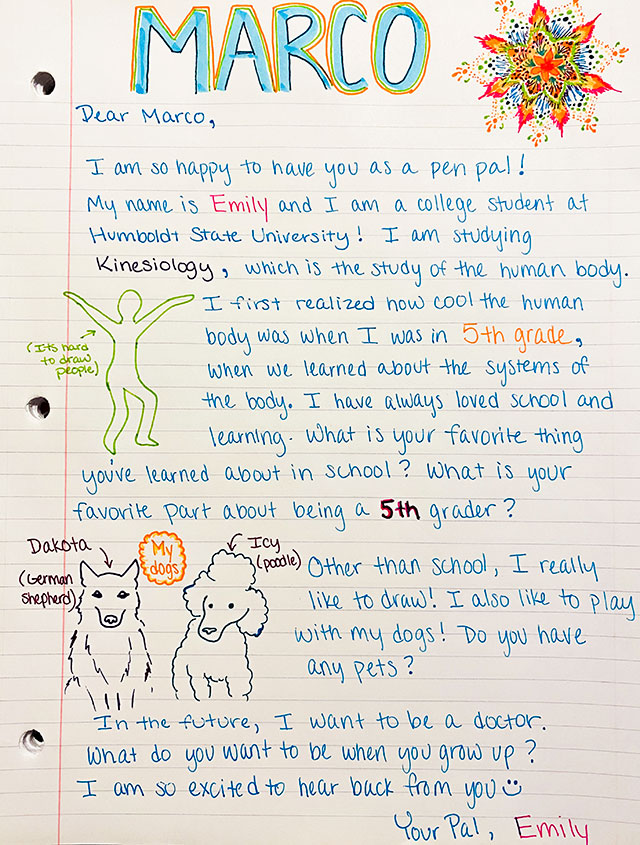 MARCO
Dear Marco,
I am so happy to have you as a pen pal!
My name is Emily and I am a college student at
Humboldt State University! I am studying
Kinesiology, which is the study of the human body.
I first realized how cool the human
body was when I was in 5th grade,
when we learned about the systems of
the body. I have always loved school and
learning. What is your favorite thing
you've learned about in school? What is your
favorite part about being a 5th grader?
(Its hard
to draw
people)
Dakota
(German
shepherd)
My
dogs
Icy
(poodle)
Other than school, I really
like to draw! I also like to play
with my dogs! Do you have
any pets?
In the future, I want to be a doctor.
What do you want to be when you grow up?
I am so excited to hear back from you
Your Pal, Emily